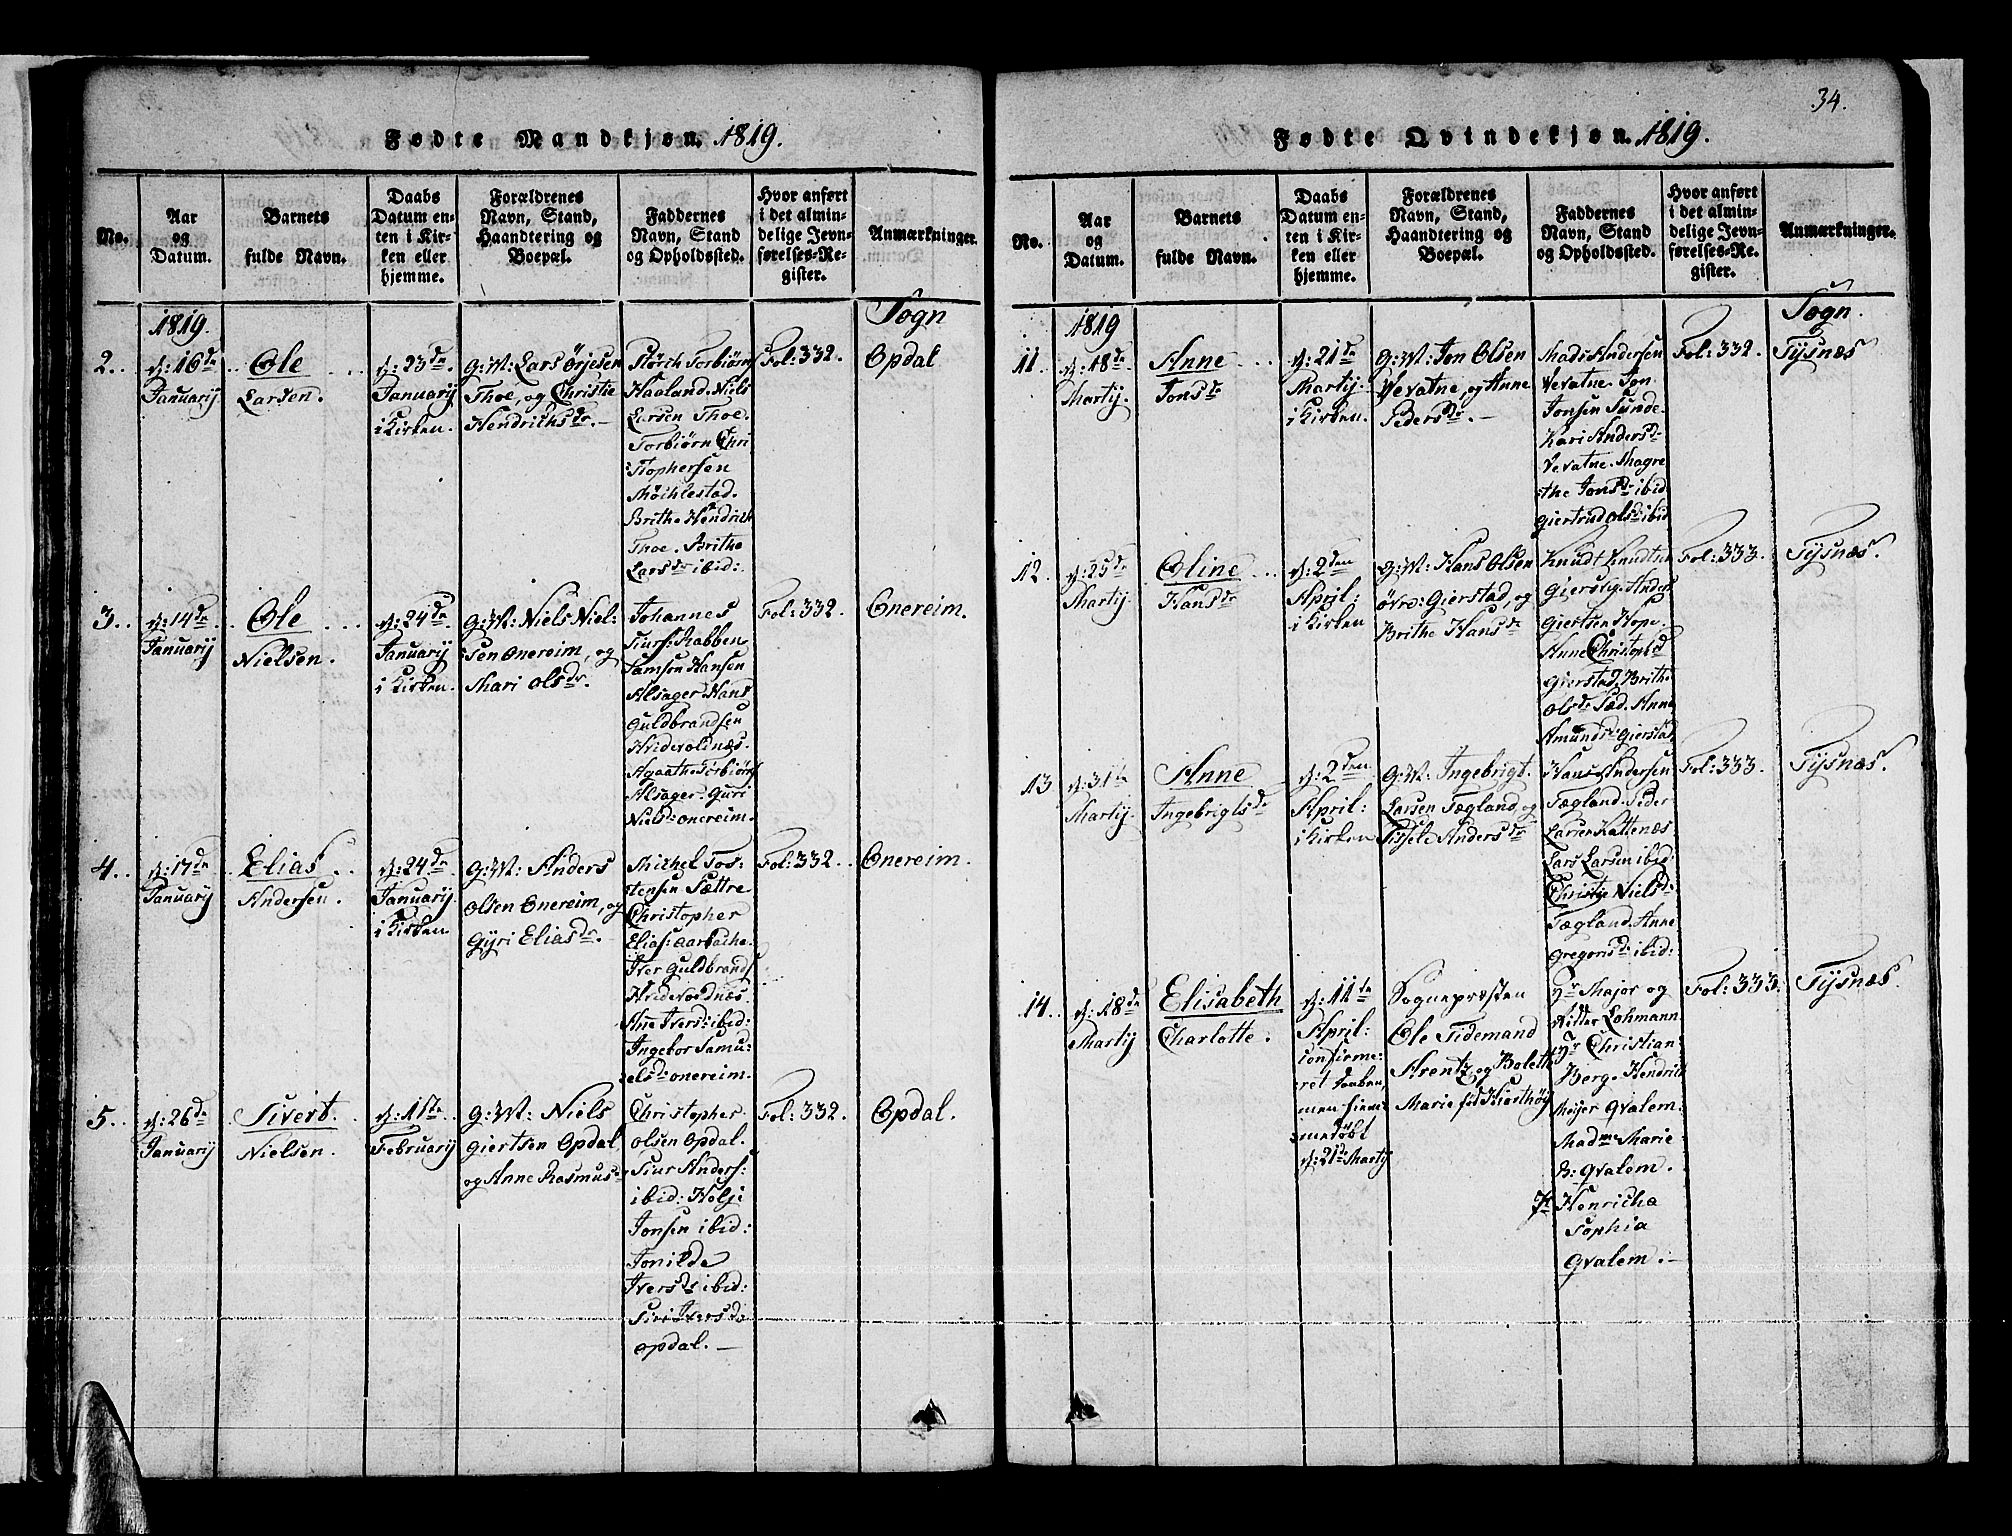 34.
Fødte Mandkjøn. 1819.
No.
Aar
og
Datum.
Barnets
fulde Navn.
Daabs
Datum en-
ten i Kir-
ken eller
hjemme.
Forældrenes
Navn, Stand,
Haandtering og
Boepæl.
Faddernes
Navn, Stand
og Opholdssted.
Hvor anført
i det almin-
delige Jevn-
førelses-Re-
gister.
Anmærkninger.
1819.
Sogn
2.
d: 16de
Januarij
Ole
Larsen.
d: 23de
Januarij
i Kirken.
G: M: Lars Ørjesen
Thoe, og Christie
Hendrichsdr.
Størch Torbiørns
Haaland. Niels
Larsen Thoe.
Torbiørn Chri
stophersen
Møchlestad.
Brithe Hendrichs
Thoe. Brithe
Larsdr ibid:
Fol: 332.
Opdal
3.
d: 14de
Januarij
Ole
Nielsen.
d: 24de
Januarij
i Kirken.
G: M: Niels Niel:
sen Onereim, og
Mari Olsdr.
Johannes
Siurs: Rabben
Samson Hansen
Alsager. Hans
Guldbrandsen
Hvidevoldnæs.
Agaathe Torbiørns
Alsager. Guri
Niels: Onereim.
Fol: 332.
Onereim.
4.
d: 17de
Januarij
Elias
Andersen.
d: 24de
Januarij
i Kirken
G: M: Anders
Olsen Onereim, og
Gyri Eliasdr.
Michel Tos:
tensen Sættre
Christopher
Elias: Aarbache.
Iver Guldbrands
Hvidevoldnæs.
Ane Ivers: ibid:
Ingebor Samu:
elsd: Onereim.
Fol: 332
Onereim.
5.
d: 26de
Januarij
Sivert.
Nielsen.
d: 11te
Februarij
G: M: Niels
Giertsen Opdal
og Anne Rasmus
Christopher
Olsen Opdal.
Siur Anders:
ibid: Helje
Jonsen ibid:
Jonilde
Iversdr ibid:
Siri Iversdr
Opdal.
Fol: 332.
Opdal.
Fødte Qvindekjøn. 1819.
No.
Aar
og
Datum.
Barnets
fulde Navn.
Daabs
Datum en-
ten i Kir-
ken eller
hjemme.
Forældrenes
Navn, Stand,
Haandtering og
Boepæl.
Faddernes
Navn, Stand
og Opholdssted.
Hvor anført
i det almin-
delige Jevn-
førelses-Re-
gister.
Anmærkninger.
1819
Sogn.
11.
d: 18de
Martij.
Anne
Jonsdr
d: 21de
Martij.
i Kirken.
G: M: Jon Olsen
Vevatne, og Anne
Pedersdr.
Mads Andersen
Vevatne. Jon
Jonsen Sunde.
Kari Andersd
Vevatne. Magre
the Jonsdr ibid
Giertrud Olsdr ibid
Fol: 332.
Tysnæs
12.
d: 25de
Martij.
Oline
Hansdr
d: 2den
April:
i Kirken
G: M: Hans Olsen
øvre: Gierstad, og
Brithe Hansdr
Knudt Knudtsen
Giersvig. Anders
Giertsen Hope.
Anne Christophd
Gierstad. Brithe
Olsdr Sæd. Anne
Amundsd: Gierstad
Fol: 333.
Tysnæs.
13
d: 31te
Martij.
Anne
Ingebrigtsdr
d: 2den
April:
i Kirken
G: M: Ingebrigt.
Larsen Tægland, og
Sissele Andersdr
Hans Andersen
Tægland. Peder
Larsen Kattenæs
Lars Larsen ibid:
Christie Nielsdr
Tægland. Anne
Gregorisd: ibid:
Fol: 333.
Tysnæs.
14.
d: 18de
Martij
Elisabeth
Charlotte.
d: 11te
April:
confirme:
ret Daaben,
men hiem
medøbt
d: 21de Martij
Sognepræsten
Ole Tidemand
Arentz, og Boleth
Marie fød Kiarthøj
Hr Major og
Ridder Lohmann
Hr Christian
Berg. Hendrich
Meijer Qvalem.
Madme Marie
B: Qvalem.
Jfr Henricha
Sophia
Qvalem.
Fol: 333.
Tysnæs.